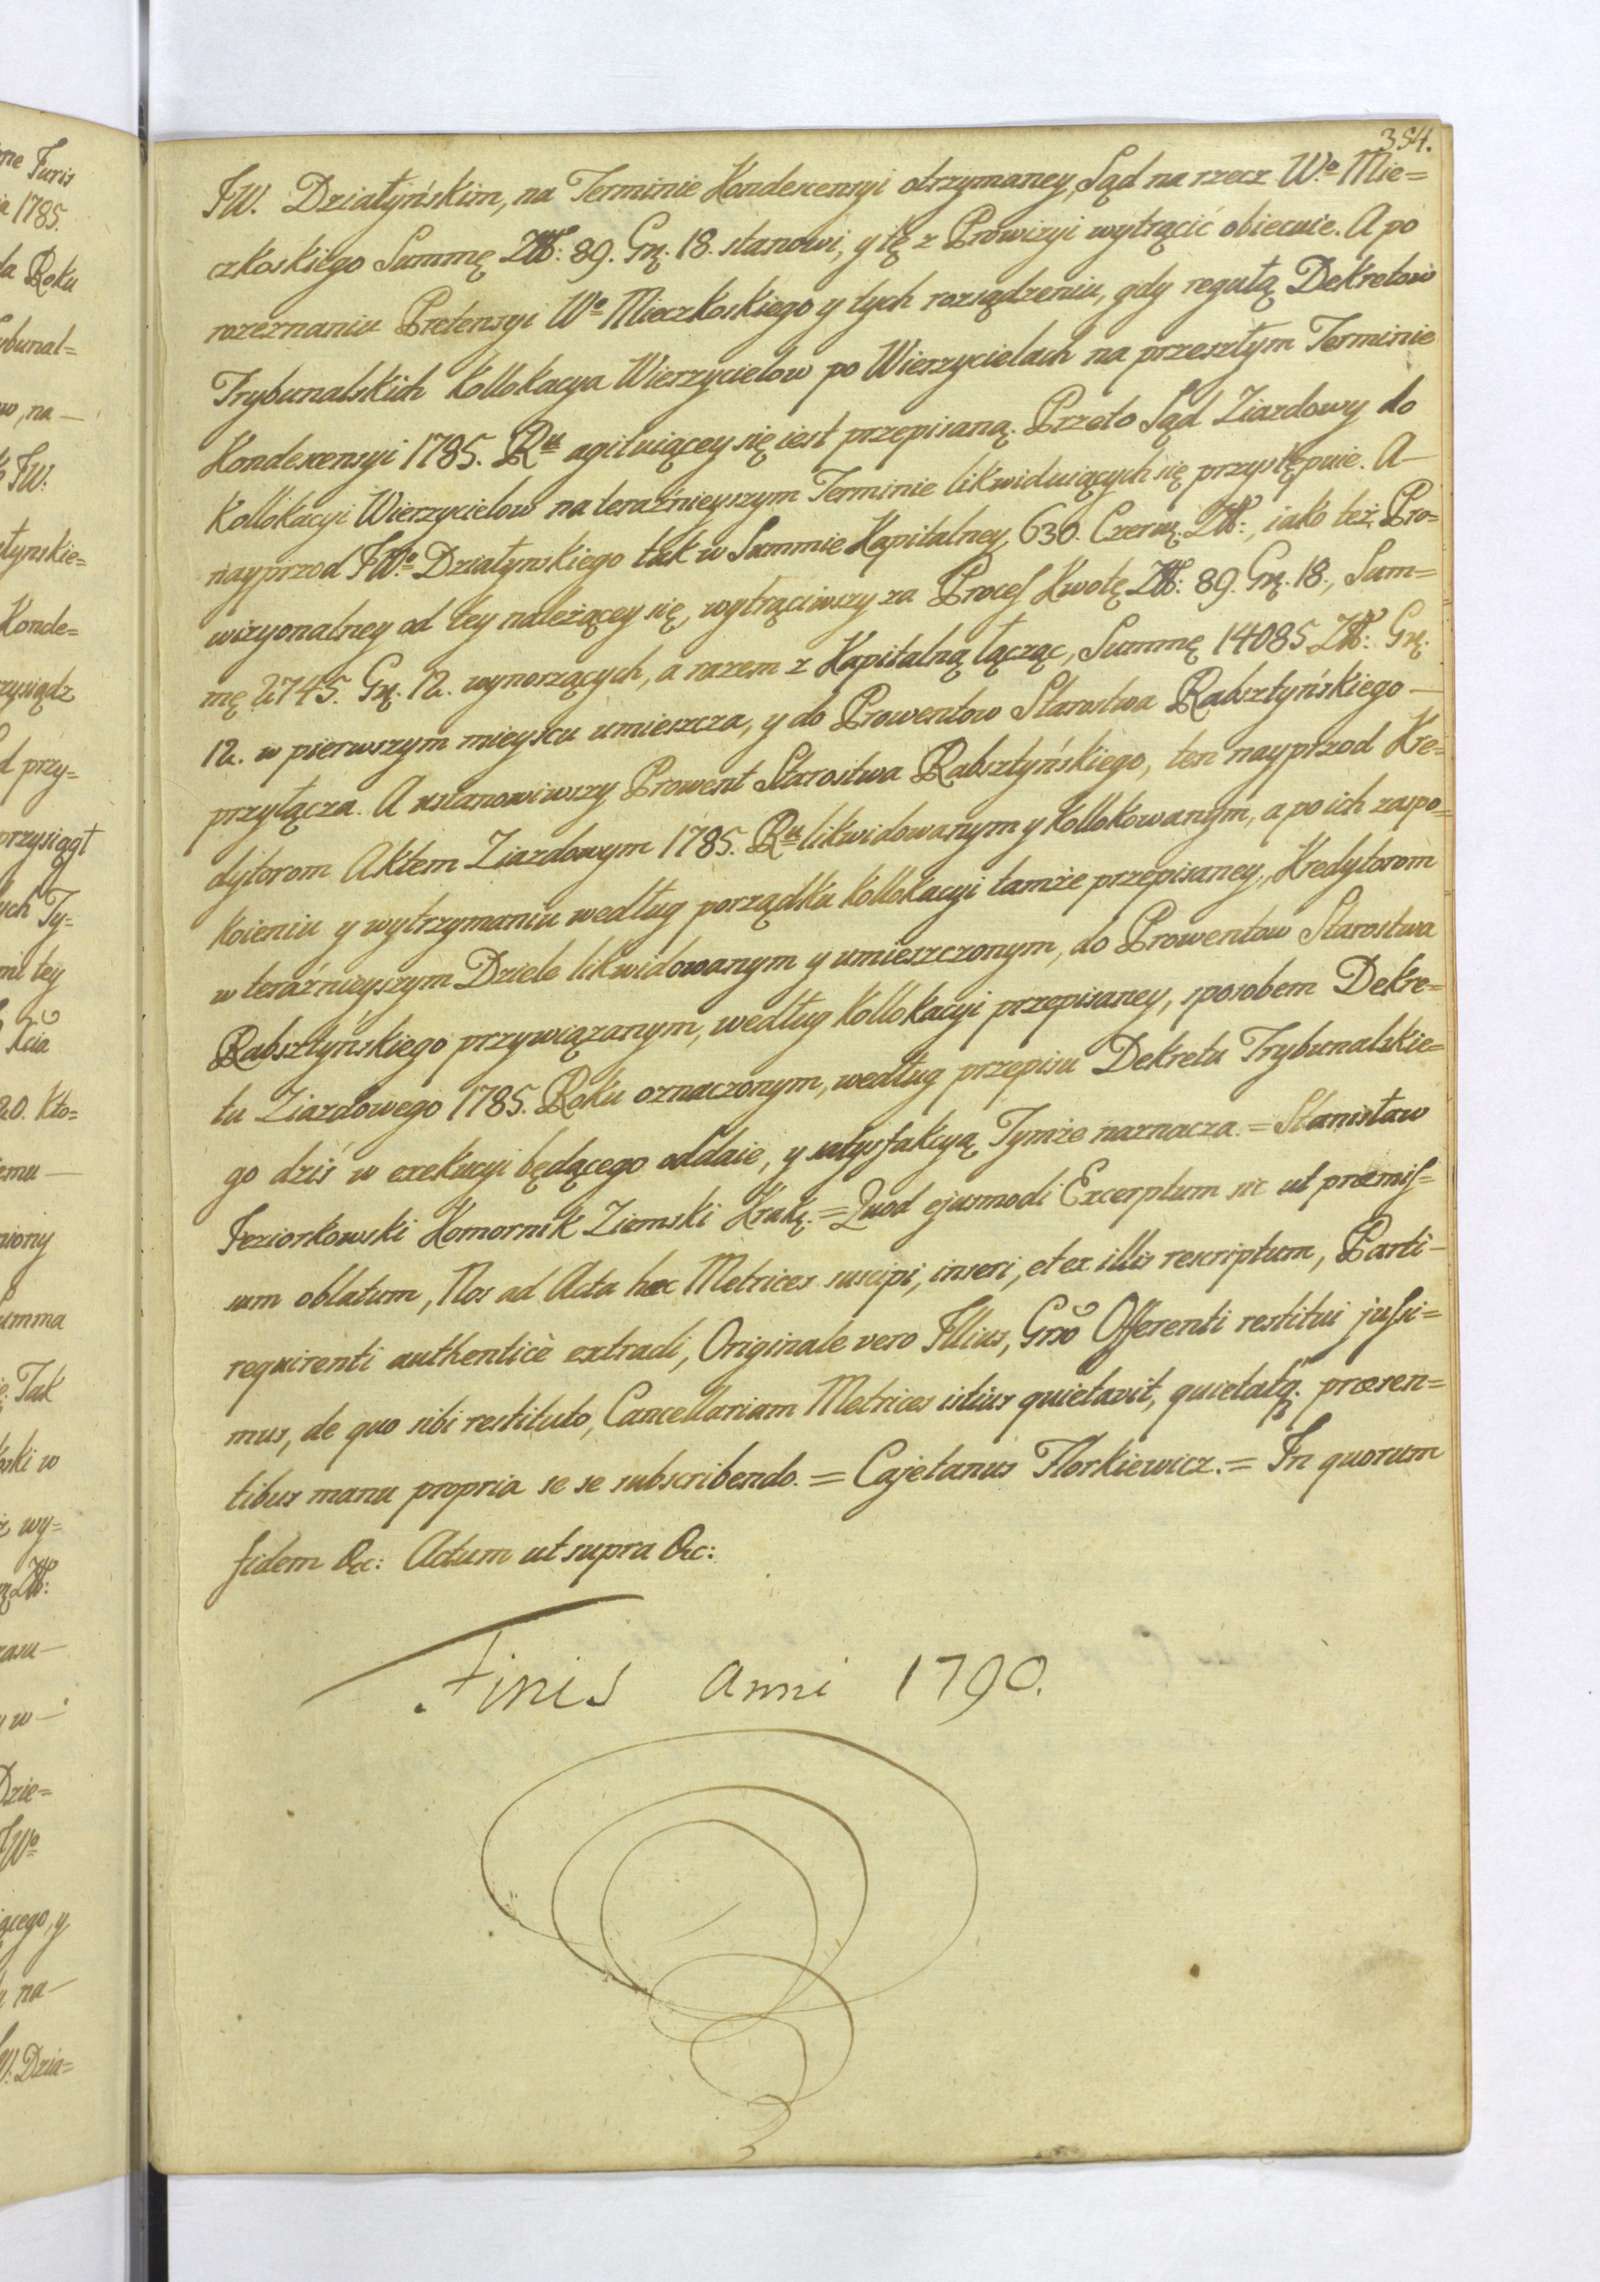 354.
JW. Działyńskim, na Terminie Kondescensyi otrzymaney, Sąd na rzecz Wº Mie=
czkoskiego Summę Zł: 89. Gr. 18. stanowi, y tę z Prowizyi wytrącić obiecuie. A po
rozeznaniu Pretensyi Wº Mieczkoskiego y tych rozsądzeniu, gdy regułą Dekretow
Trybunalskich kollokacya Wierzycielow po Wierzycielach na przeszłym Terminie
Kondescensyi 1785. Ru agituiącey się iest przepisaną. Przeto Sąd Ziazdowy do
kollokacyi Wierzycielow na teraźnieyszym Terminie likwiduiących się przystępuie. A—
nayprzod JWº Działynskiego tak w Summie Kapitalney 630. Czerw. Zł:, iako też Pro=
wizyonalney od tey należącey się, wytrąciwszy za Proceſ Kwotę Zł: 89. Gr. 18., Sum=
mę 2745. Gr. 12. wynoszących, a razem z Kapitalną łącząc, Summę 14085 Zł: Gr.
12. w pierwszym mieyscu umieszcza, y do Prowentow Starostwa Rabsztyńskiego —
przyłącza. A ustanowiwszy Prowent Starostwa Rabsztyńskiego, ten nayprzod Kre=
dytorom Aktem Ziazdowym 1785. Ru likwidowanym y kollokowanym, a po ich zaspo=
koieniu y wytrzymaniu według porządku kollokacyi tamże przepisaney, Kredytorom
w teraźnieyszym Dziele likwidowanym y umieszczonym, do Prowentow Starostwa
Rabsztyńskiego przywiązanym, według kollokacyi przepisaney, sposobem Dekre=
tu Ziazdowego 1785. Roku oznaczonym, według przepisu Dekretu Trybunalskie=
go dziś w exekucyi będącego oddaie, y satysfakcyą Tymże naznacza. = Stanisław
Jeziorkowski Komornik Ziemski Krak. = Quod ejusmodi Excerptum sic ut præmiſ=
sum oblatum, Nos ad Acta hæc Metrices suscipi, inseri, et ex illis rescriptum, Parti —
requirenti authenticè extradi, Originale vero Illius, Grõ Offerenti restitui juſsi=
mus, de quo sibi restituto, Cancellariam Metrices istius quietavit, quietatq. præsen=
tibus manu propria se se subscribendo. = Cajetanus Florkiewicz. = In quorum
fidem &c: Actum ut supra &c:
Finis Anni 1790.
me Juris
a 1785.
Roku
bunal=
na —
JW:
Konde=
przy=
przysiągł
ych Ty=
mi tey
20. Kło=
emu —
umma
Tak
ski w
wy=
w —
Dzie=
JWº
iącego, y
na —
Dzia=